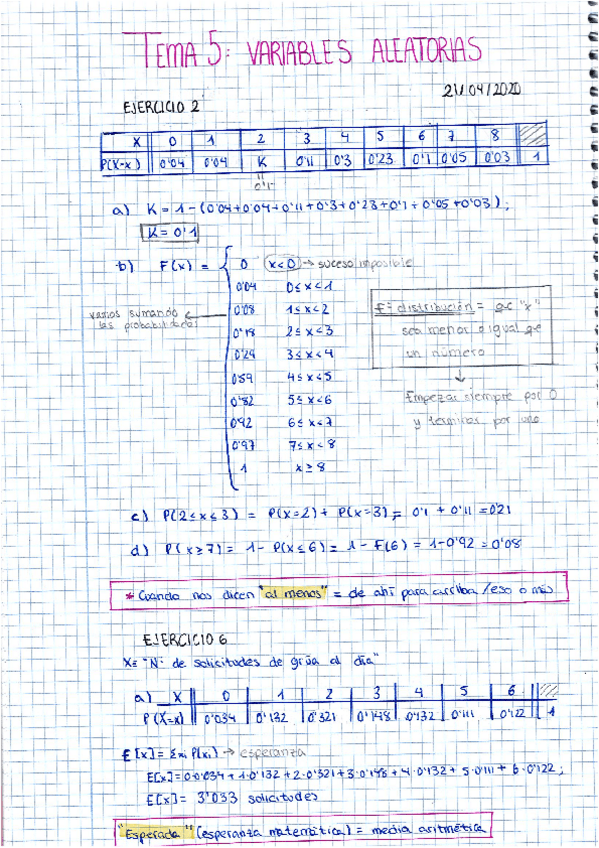 TEMA 5: VARIABLES ALEATORIAS
21/04/2020
EJERCICIO 2
X 0 1 2 3 4 5 6 7 8
P(X=x) 0'04 0'04 K 0'11 0'3 0'23 0'1 0'05 0'03 1
0'1
a) K = 1 - (0'04+0'04+0'11+0'3+0'23+0'1+0'05+0'03);
K = 0'1
b) F(x) = { 0 x<0 → suceso imposible
0'04 0≤x<1
0'08 1≤x<2
vamos sumando las probabilidades
0'18 2≤x<3
0'29 3≤x<4
0'59 4≤x<5
0'82 5≤x<6
0'92 6≤x<7
0'97 7≤x<8
1 x≥8
F: distribución = que "x"
sea menor o igual que
un número
Empezar siempre por 0
y terminar por uno
c) P(2≤x≤3) = P(x=2) + P(x=3) = 0'1 + 0'11 = 0'21
d) P(x≥7) = 1 - P(x≤6) = 1 - F(6) = 1-0'92 = 0'08
* Cuando nos dicen "al menos" = de ahí para arriba / eso o más
EJERCICIO 6
X = "Nº de solicitudes de grúa al día"
a) X 0 1 2 3 4 5 6
P(X=x) 0'034 0'132 0'321 0'148 0'132 0'111 0'122 1
E[x] = Σxi P(xi) → esperanza
E[x] = 0·0'034 + 1·0'132 + 2·0'321 + 3·0'148 + 4·0'132 + 5·0'111 + 6·0'122;
E[x] = 3'033 solicitudes
"Esperada" (esperanza matemática) = media aritmética